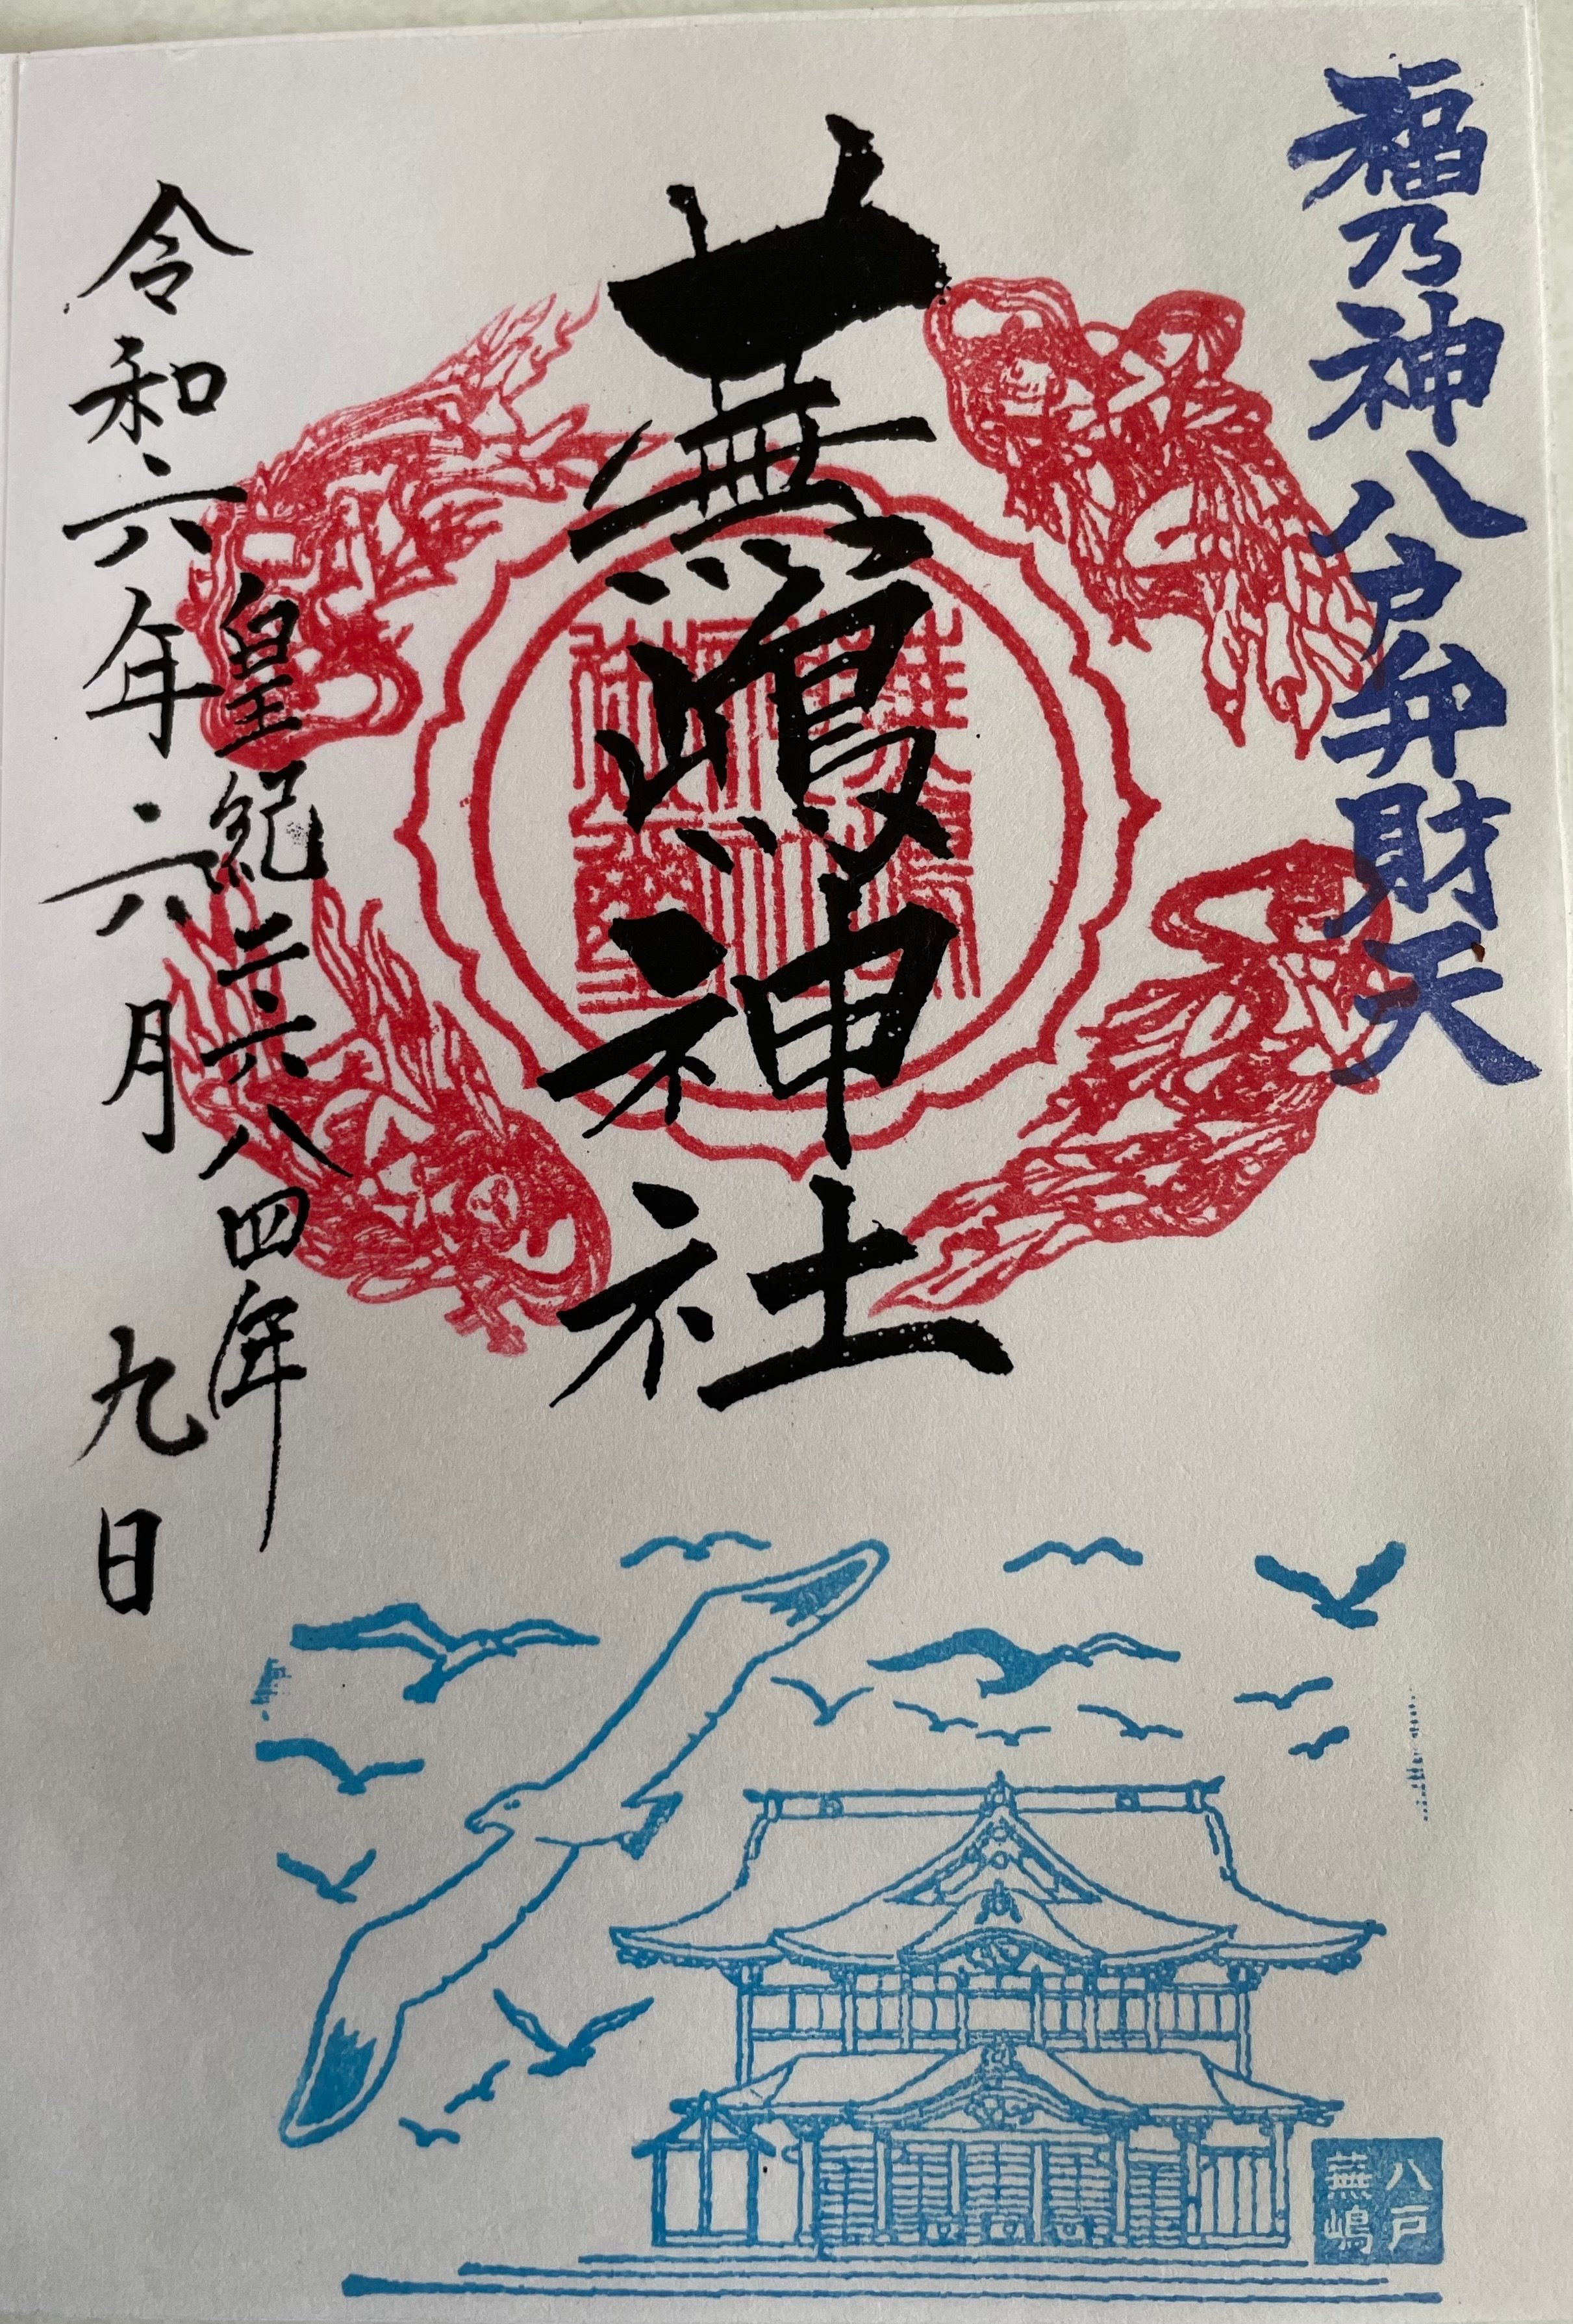 福乃神八戸弁財天
蕪嶋神社
皇紀二六八四年
令和六年六月九日
八戸
蕪嶋